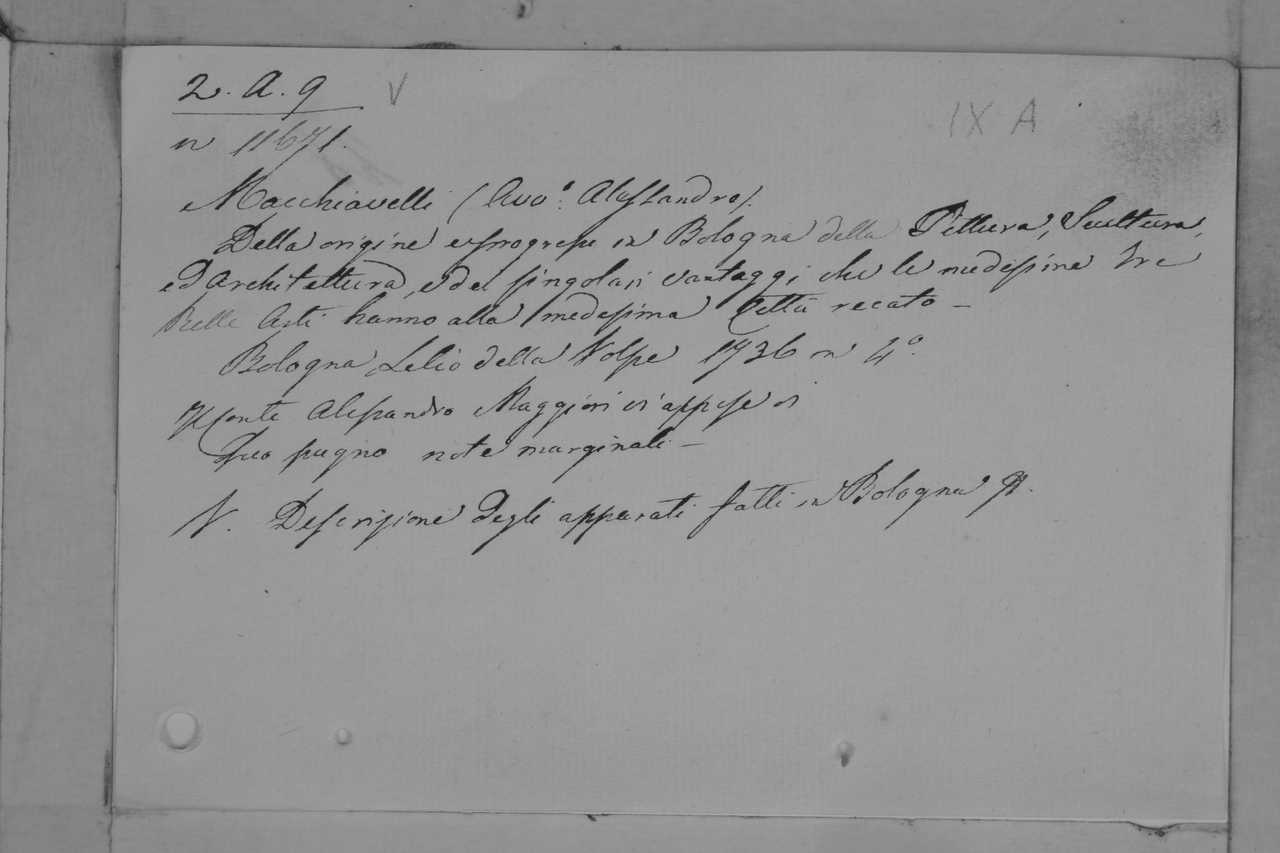 2. A. 9 V
IX A
n 11671.
Macchiavelli (Avo.º Alessandro).
Della origine e progresse in Bologna della Pittura, Scultura,
ed Architettura, e dei singolari vantaggi, che le medesime tre
Belle Arti hanno alla medesima Città recato –
Bologna, Lelio della Volpe 1736 in 4º.
Il Conte Alessandro Maggiori vi appose di
suo pugno note marginali –
V. Descrizione degli apparati fatti in Bologna